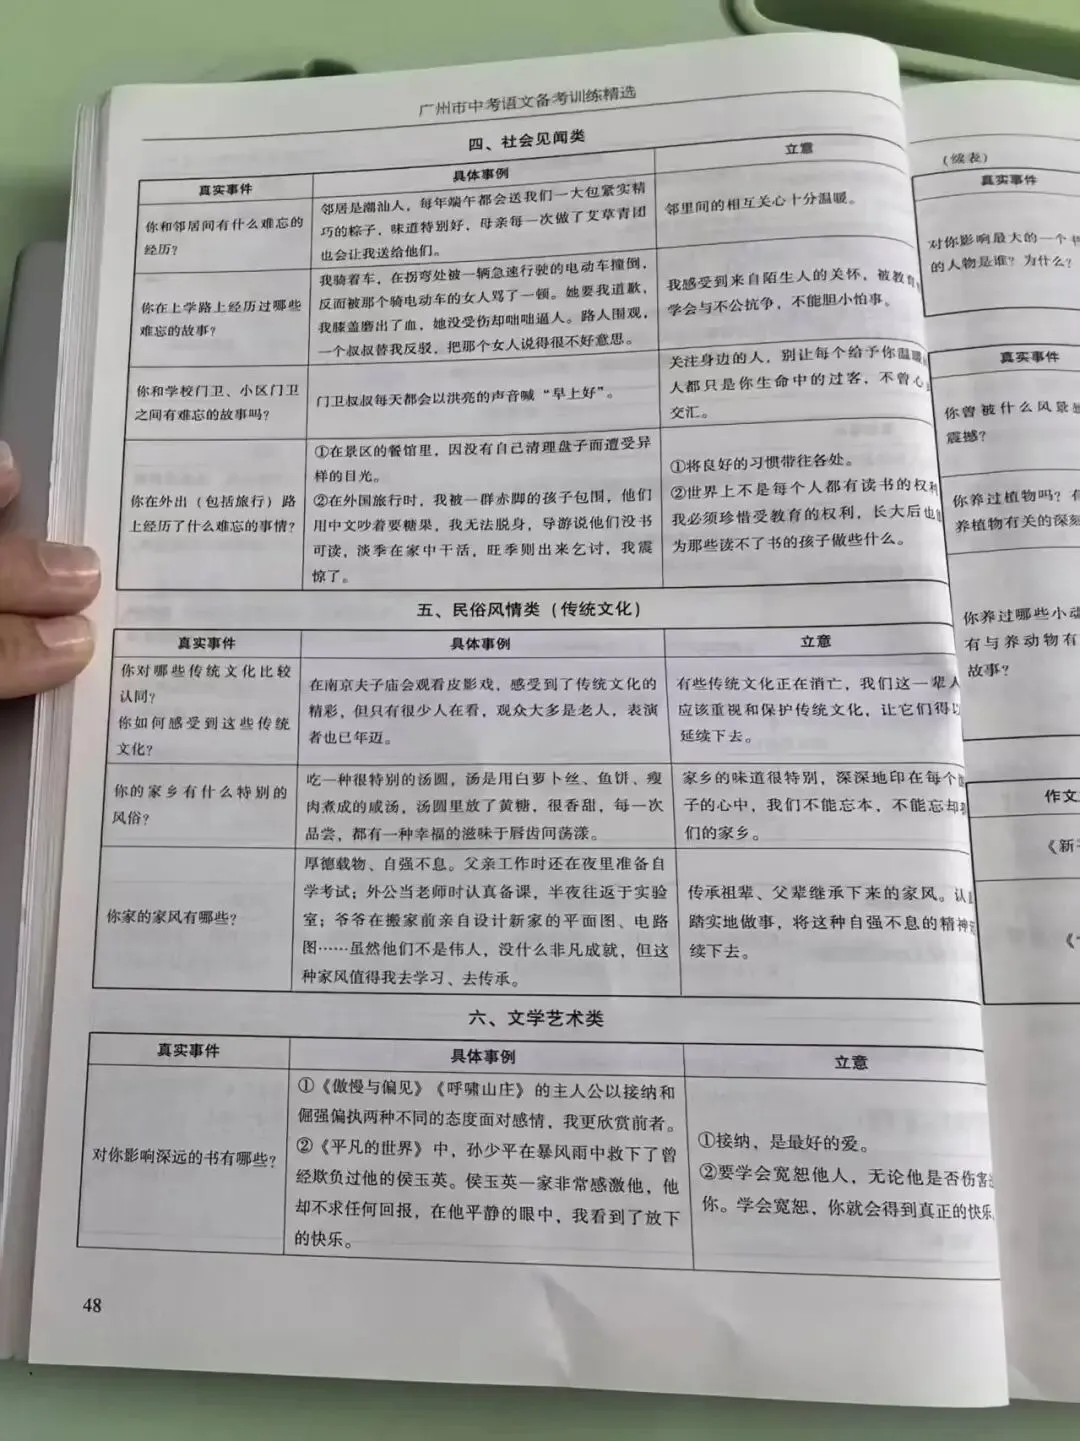 广州市中考语文备考训练精选
四、社会见闻类
真实事件
具体事例
立意
你和邻居间有什么难忘的
经历?
邻居是潮汕人，每年端午都会送我们一大包紧实精
巧的粽子，味道特别好，母亲每一次做了艾草青团
也会让我送给他们。
邻里间的相互关心十分温暖。
你在上学路上经历过哪些
难忘的故事?
我骑着车，在拐弯处被一辆急速行驶的电动车撞倒，
反而被那个骑电动车的女人骂了一顿。她要我道歉，
我膝盖磨出了血，她没受伤却咄咄逼人。路人围观，
一个叔叔替我反驳，把那个女人说得很不好意思。
我感受到来自陌生人的关怀，被教育
学会与不公抗争，不能胆小怕事。
你和学校门卫、小区门卫
之间有难忘的故事吗?
门卫叔叔每天都会以洪亮的声音喊“早上好”。
关注身边的人，别让每个给予你温暖
人都只是你生命中的过客，不曾心
交汇。
你在外出（包括旅行）路
上经历了什么难忘的事情?
①在景区的餐馆里，因没有自己清理盘子而遭受异
样的目光。
②在外国旅行时，我被一群赤脚的孩子包围，他们
用中文吵着要糖果，我无法脱身，导游说他们没书
可读，淡季在家中干活，旺季则出来乞讨，我震
惊了。
①将良好的习惯带往各处。
②世界上不是每个人都有读书的权利
我必须珍惜受教育的权利，长大后也
为那些读不了书的孩子做些什么。
五、民俗风情类（传统文化）
真实事件
具体事例
立意
你对哪些传统文化比较
认同?
你如何感受到这些传统
文化?
在南京夫子庙会观看皮影戏，感受到了传统文化的
精彩，但只有很少人在看，观众大多是老人，表演
者也已年迈。
有些传统文化正在消亡，我们这一辈人
应该重视和保护传统文化，让它们得以
延续下去。
你的家乡有什么特别的
风俗?
吃一种很特别的汤圆，汤是用白萝卜丝、鱼饼、瘦
肉煮成的咸汤，汤圆里放了黄糖，很香甜，每一次
品尝，都有一种幸福的滋味于唇齿间荡漾。
家乡的味道很特别，深深地印在每个
子的心中，我们不能忘本，不能忘却
们的家乡。
你家的家风有哪些?
厚德载物、自强不息。父亲工作时还在夜里准备自
学考试；外公当老师时认真备课，半夜往返于实验
室；爷爷在搬家前亲自设计新家的平面图、电路
图……虽然他们不是伟人，没什么非凡成就，但这
种家风值得我去学习、去传承。
传承祖辈、父辈继承下来的家风。认
踏实地做事，将这种自强不息的精神
续下去。
六、文学艺术类
真实事件
具体事例
立意
对你影响深远的书有哪些?
①《傲慢与偏见》《呼啸山庄》的主人公以接纳和
倔强偏执两种不同的态度面对感情，我更欣赏前者。
②《平凡的世界》中，孙少平在暴风雨中救下了曾
经欺负过他的侯玉英。侯玉英一家非常感激他，他
却不求任何回报，在他平静的眼中，我看到了放下
的快乐。
①接纳，是最好的爱。
②要学会宽恕他人，无论他是否伤害
你。学会宽恕，你就会得到真正的快乐
48
（续表）
真实事件
对你影响最大的一个
的人物是谁？为什么?
真实事件
你曾被什么风景
震撼?
你养过植物吗？有
养植物有关的深刻
你养过哪些小动
有与养动物有
故事?
作文
《新